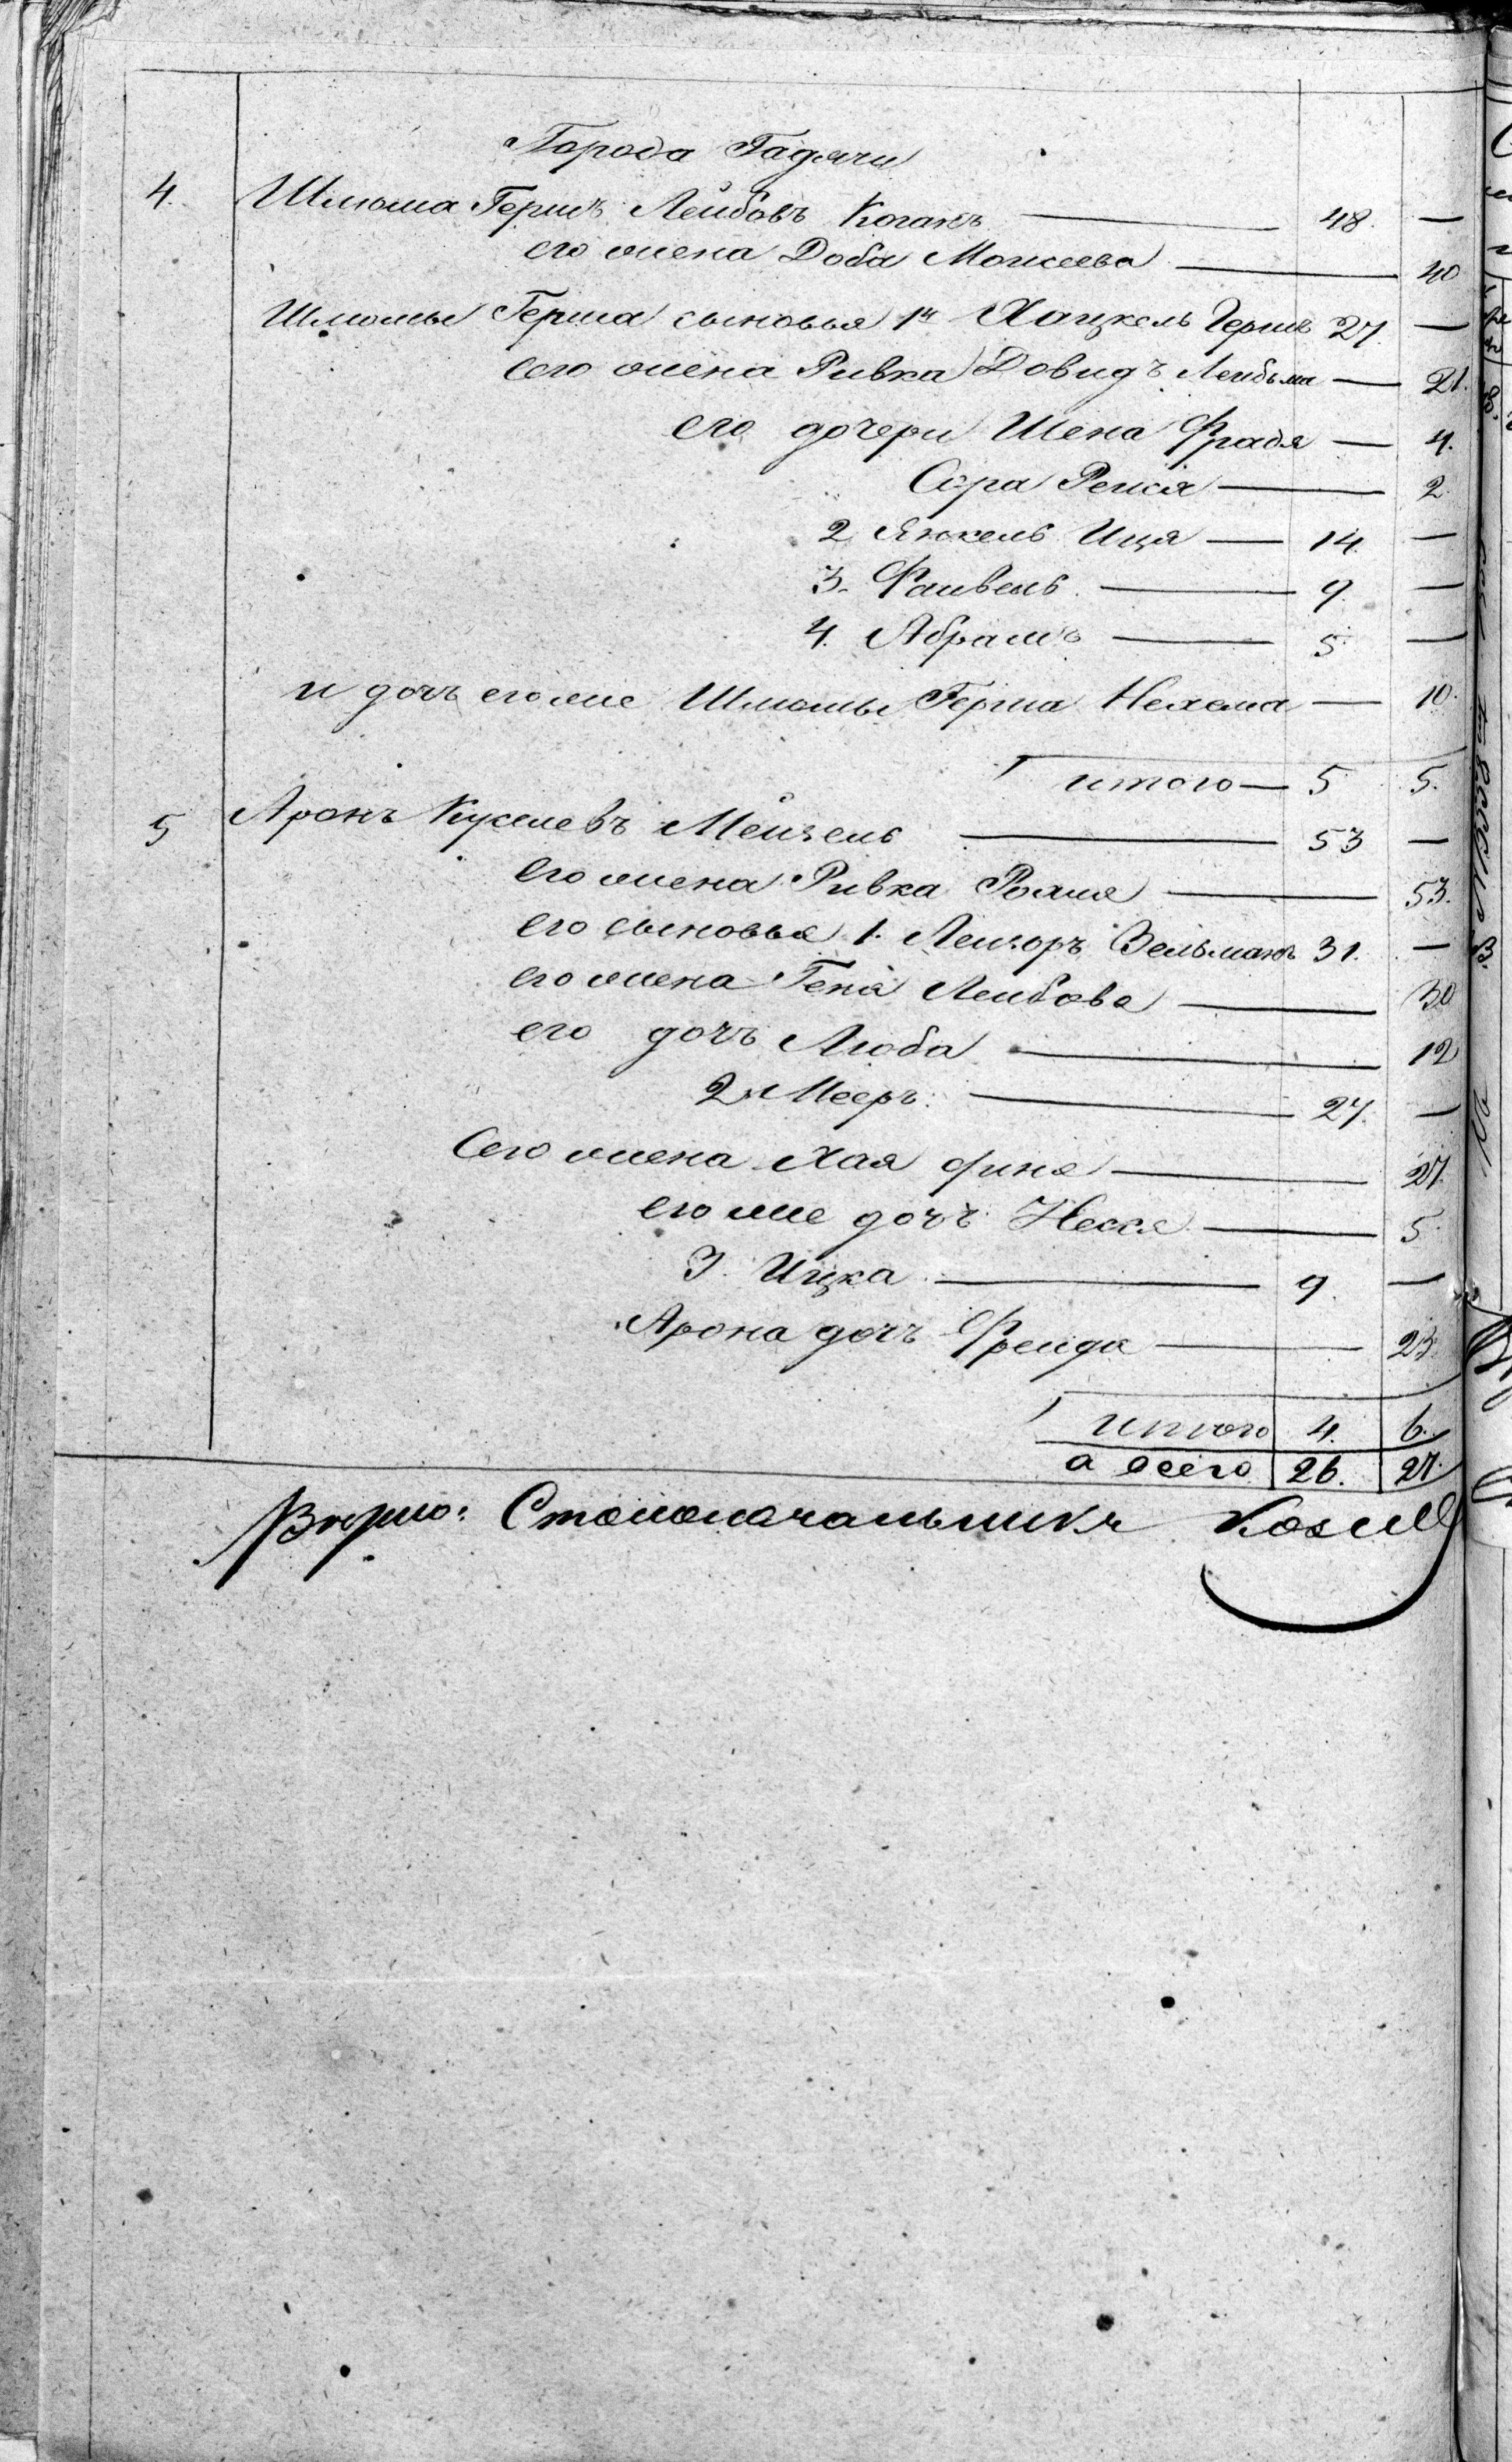 Города Гадячи
4. Шлиома Гершъ Лейбовъ Коганъ — 48. —
его жена Доба Моисеева — 40
Шлиомы Герша сыновья 1й Хацкель Гершъ 27. —
его жена Ривка Довидъ Лейбъма — 21.
его дочери Шена Фрадя — 4.
Сора Рейся — 2.
2 Янкель Иця — 14. —
3. Файвель — 9. —
4. Абрамъ — 5. —
и дочь его же Шлиомы Герша Нехама — 10.
итого — 5 5.
5 Аронъ Куселевъ Мейзель — 53 —
его жена Ривка Рохля — 53.
его сыновья 1. Лейзоръ Зельманъ 31. —
его жена Геня Лейбова — 30
его дочь Люба — 12
2й Мееръ — 27. —
его жена Хая фина — 27.
его же дочь Неся — 5.
3. Ицка — 9. —
Арона дочь Фрейда — 23.
итого 4. 6.
а всего 26. 27.
Вѣрно: Столоначальникъ